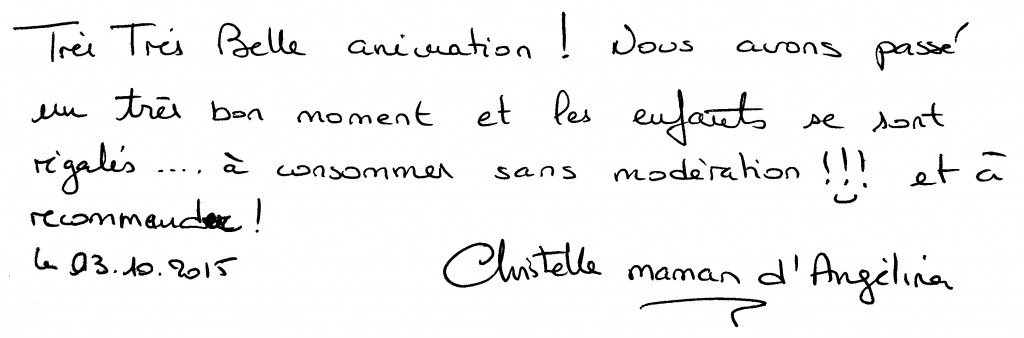 Très Très Belle animation ! Nous avons passé
un très bon moment et les enfants se sont
régalés .... à consommer sans modération !!! et à
recommander !
le 03.10.2015
Christelle maman d'Angélina